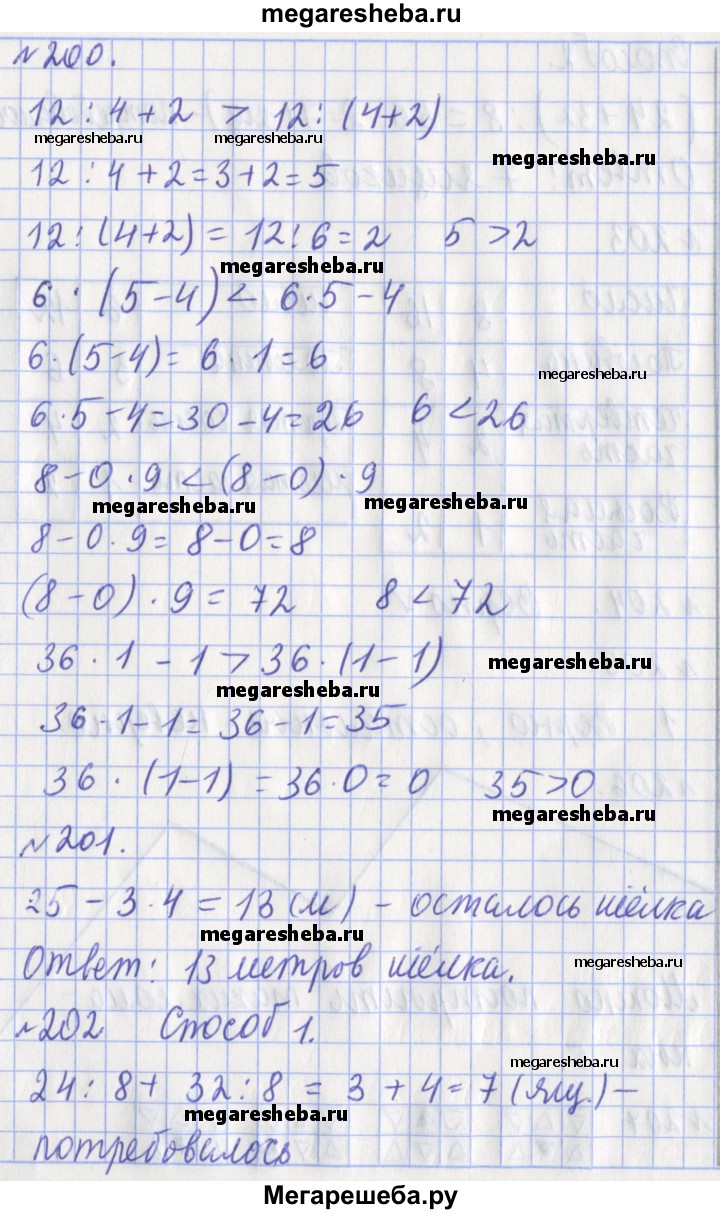 megaresheba.ru
№200.
12 : 4 + 2 > 12 : (4+2)
megaresheba.ru megaresheba.ru
megaresheba.ru
12 : 4 + 2 = 3 + 2 = 5
12 : (4+2) = 12 : 6 = 2 5 > 2
megaresheba.ru
6 · (5 - 4) < 6 · 5 - 4
6 · (5-4) = 6 · 1 = 6
megaresheba.ru
6 · 5 - 4 = 30 - 4 = 26 6 < 26
8 - 0 · 9 < (8 - 0) · 9
megaresheba.ru megaresheba.ru
8 - 0 · 9 = 8 - 0 = 8
(8 - 0) · 9 = 72 8 < 72
36 · 1 - 1 > 36 · (1 - 1)
megaresheba.ru
megaresheba.ru
36 · 1 - 1 = 36 - 1 = 35
36 · (1-1) = 36 · 0 = 0 35 > 0
megaresheba.ru
№201.
25 - 3 · 4 = 13 (м) - осталось шёлка
megaresheba.ru
Ответ: 13 метров шёлка.
megaresheba.ru
№202 Способ 1.
megaresheba.ru
24 : 8 + 32 : 8 = 3 + 4 = 7 (ящ.) -
megaresheba.ru
потребовалось
Мегарешеба.ру